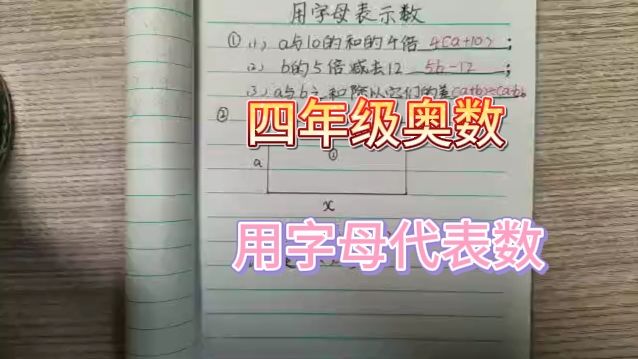 用字母表示数
① (1) a与10的和的4倍 4(a+10) ;
(2) b的5倍减去12 5b-12 ;
(3) a与b之和除以它们的差(a+b)÷(a-b)
②
四年级奥数
①
a
x
用字母代表数